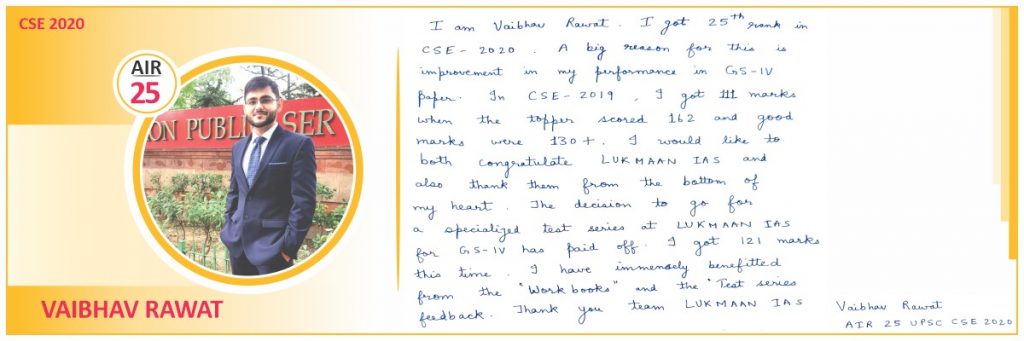 CSE 2020
AIR
25
ION PUBLI SER
VAIBHAV RAWAT
I am Vaibhav Rawat. I got 25th rank in
CSE-2020. A big reason for this is
improvement in my performance in GS-IV
paper. In CSE-2019, I got 111 marks
when the topper scored 162 and good
marks were 130+. I would like to
both congratulate LUKMAAN IAS and
also thank them from the bottom of
my heart. The decision to go for
a specialized test series at LUKMAAN IAS
for GS-IV has paid off. I got 121 marks
this time. I have immensely benefitted
from the "Work books" and the "Test series
feedback. Thank you team LUKMAAN IAS
Vaibhav Rawat
AIR 25 UPSC CSE 2020